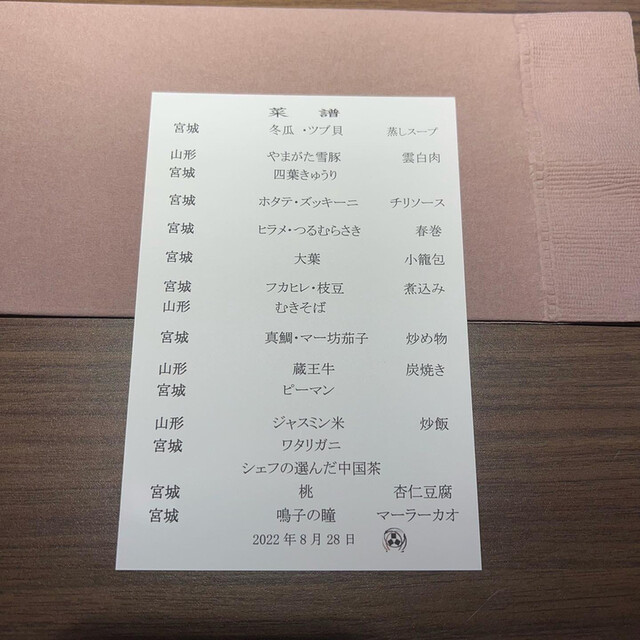 菜 譜
宮城 冬瓜・ツブ貝 蒸しスープ
山形 やまがた雪豚 雲白肉
宮城 四葉きゅうり
宮城 ホタテ・ズッキーニ チリソース
宮城 ヒラメ・つるむらさき 春巻
宮城 大葉 小籠包
宮城 フカヒレ・枝豆 煮込み
山形 むきそば
宮城 真鯛・マー坊茄子 炒め物
山形 蔵王牛 炭焼き
宮城 ピーマン
山形 ジャスミン米 炒飯
宮城 ワタリガニ
シェフの選んだ中国茶
宮城 桃 杏仁豆腐
宮城 鳴子の瞳 マーラーカオ
2022年8月28日